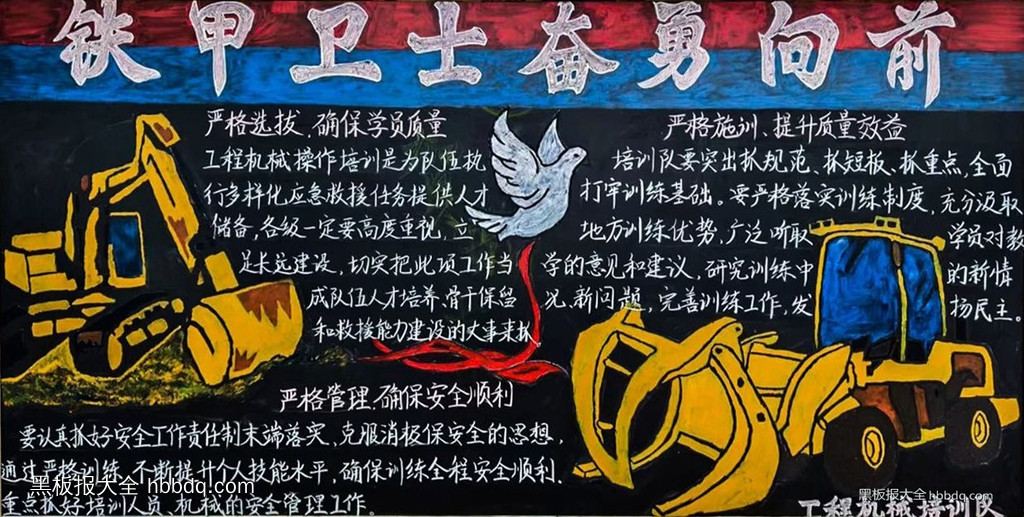 铁甲卫士奋勇向前
严格选拔、确保学员质量
工程机械操作培训是为队伍执
行多样化应急救援任务提供人才
储备,各级一定要高度重视,立
足长远建设,切实把此项工作当
成队伍人才培养、骨干保留
和救援能力建设的大事来抓。
严格施训、提升质量效益
培训队要突出抓规范、抓短板、抓重点,全面
打牢训练基础。要严格落实训练制度,充分汲取
地方训练优势,广泛听取学员对教
学的意见和建议,研究训练中的新情
况、新问题,完善训练工作,发扬民主。
严格管理、确保安全顺利
要认真抓好安全工作责任制末端落实,克服消极保安全的思想,
通过严格训练,不断提升个人技能水平,确保训练全程安全顺利.
重点抓好培训人员、机械的安全管理工作。
工程机械培训队
黑板报大全 hbbdq.com
黑板报大全 hbbdq.com